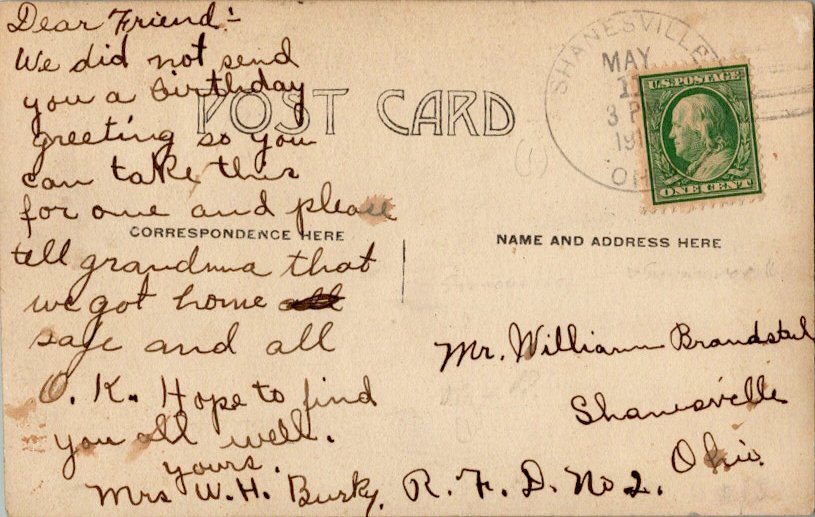 Dear Friend:-
We did not send
you a birthday
greeting so you
can take this
for one and please
tell grandma that
we got home all
safe and all
O. K. Hope to find
you all well.
yours.
Mrs W. H. Burky.
POST CARD
(1)
CORRESPONDENCE HERE
NAME AND ADDRESS HERE
SHANESVILLE
MAY
3 P
191
OH
U.S. POSTAGE
ONE CENT
Mr. William
Shanesville
Ohio.
R. F. D. No 2.